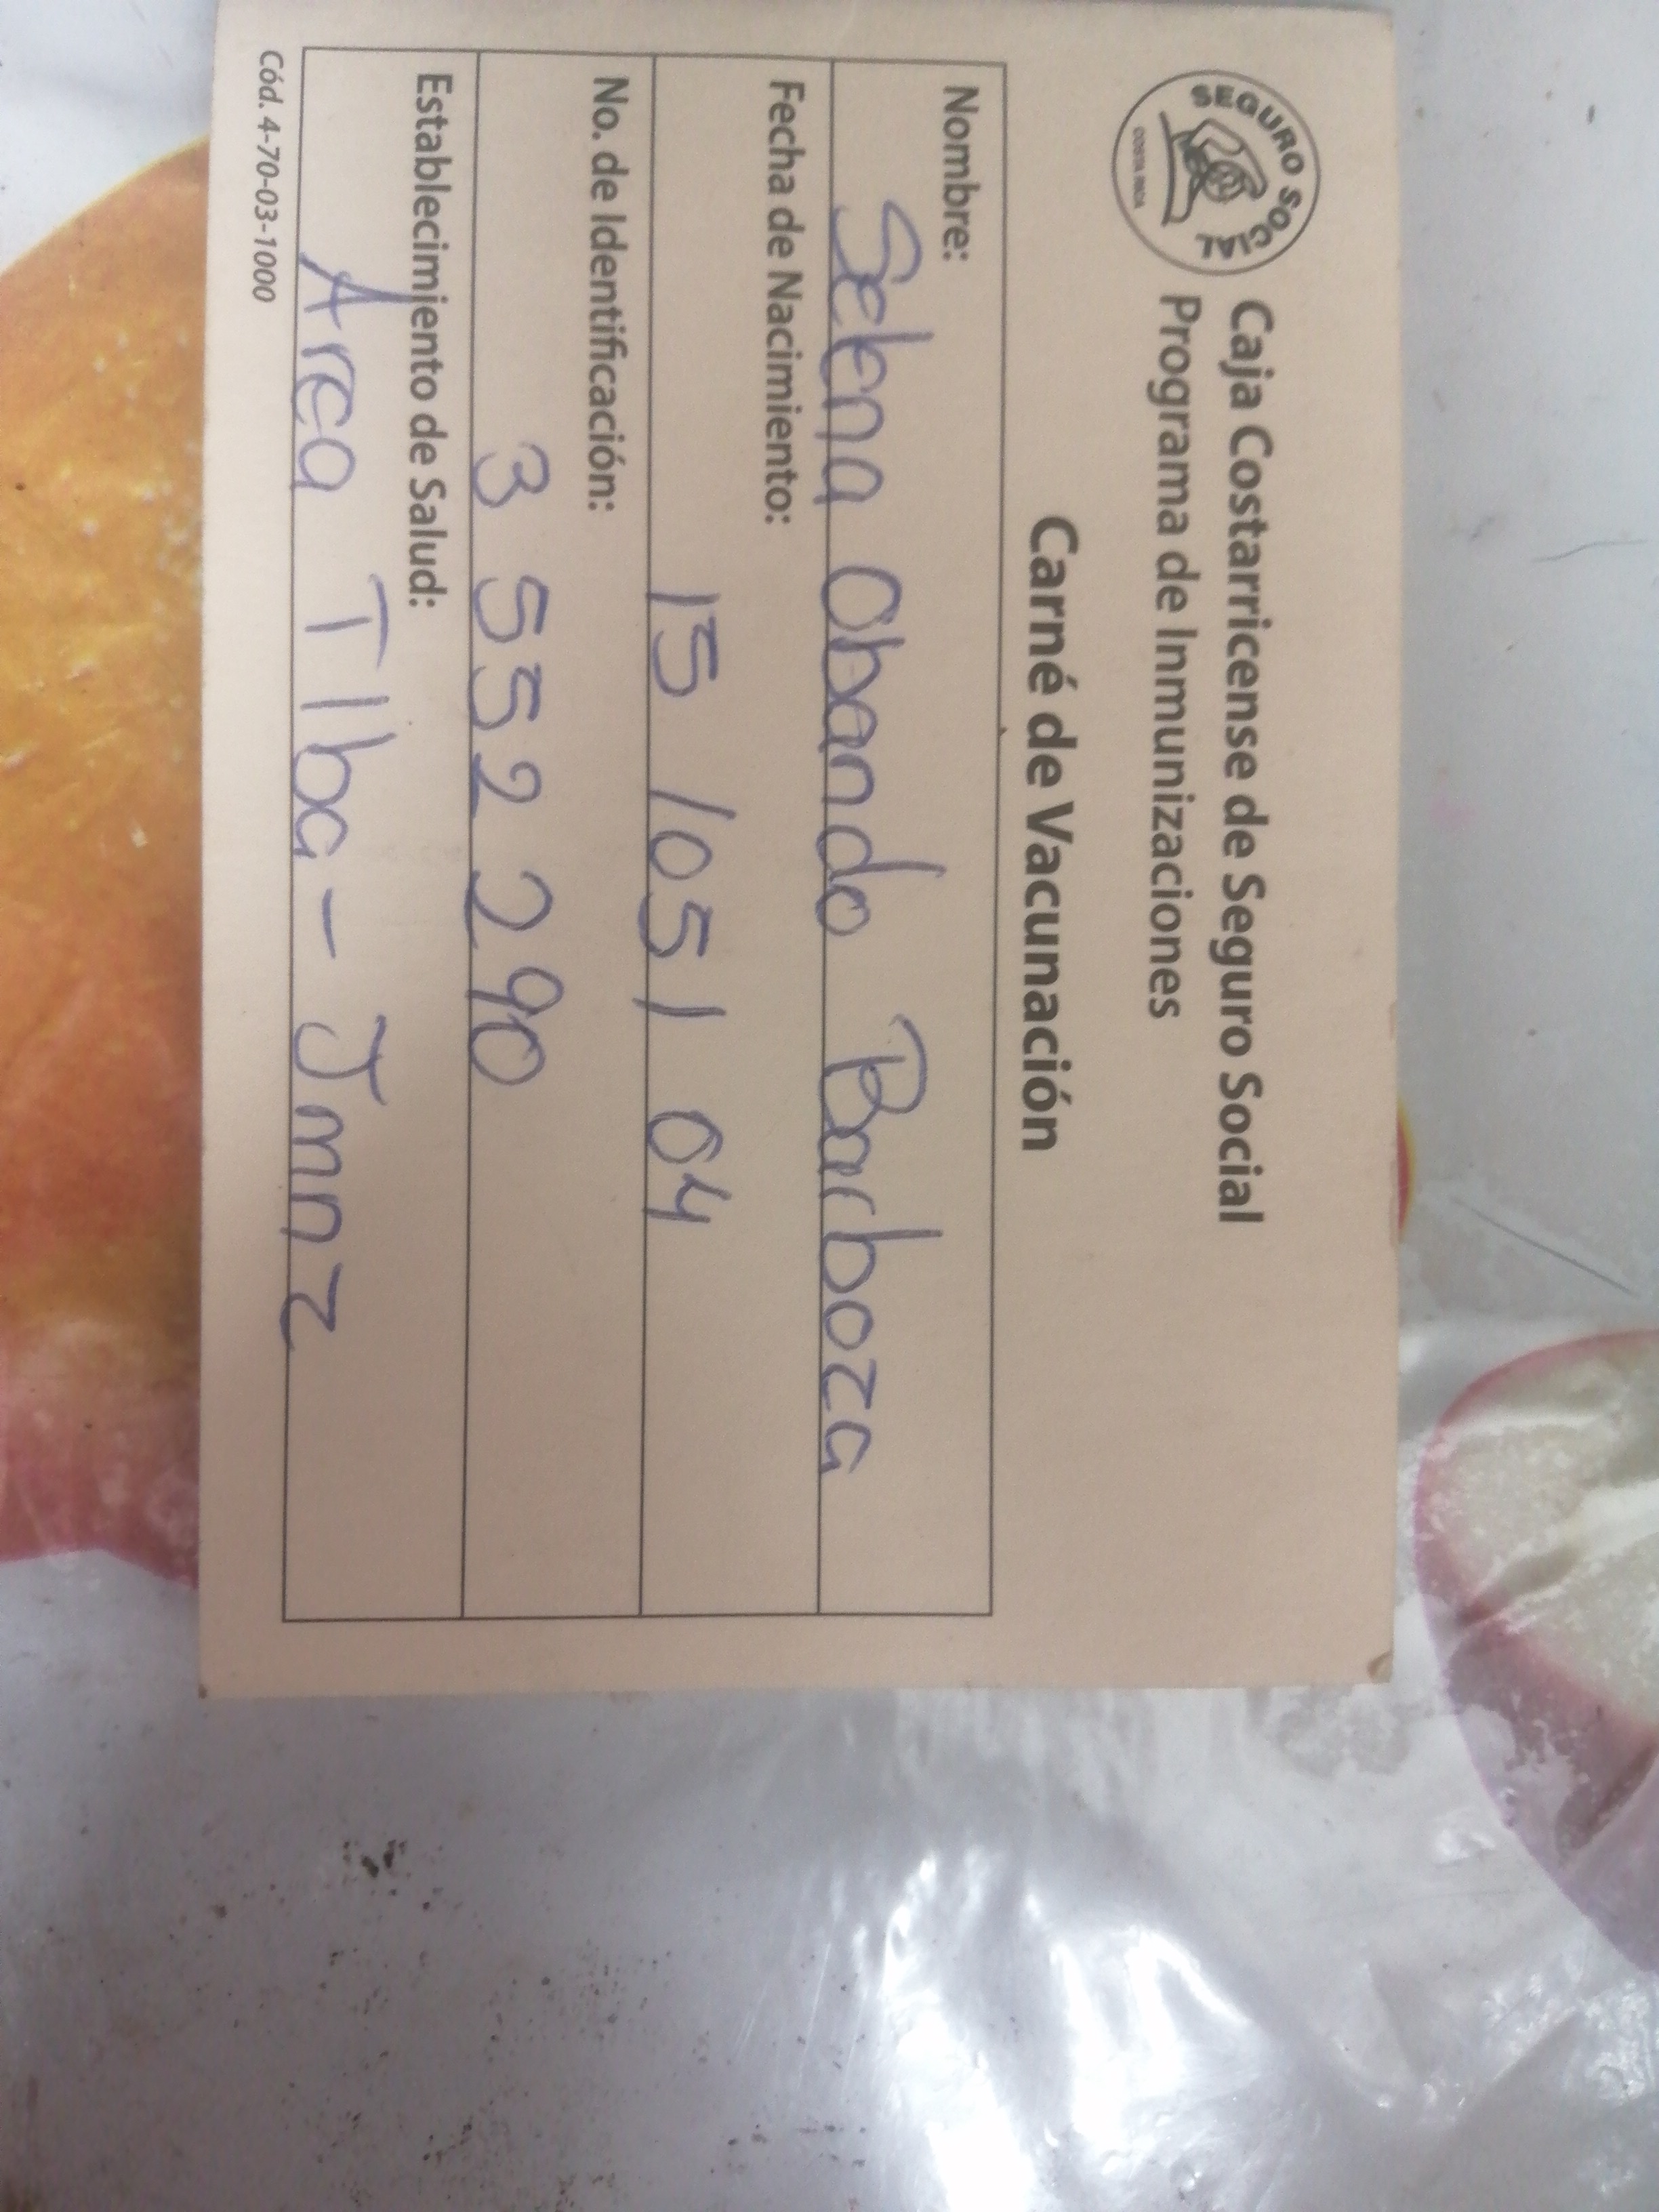 SEGURO SOCIAL
COSTA RICA
Caja Costarricense de Seguro Social
Programa de Inmunizaciones
Carné de Vacunación
Nombre:
Selena Obando Barboza
Fecha de Nacimiento:
15 / 05 / 04
No. de Identificación:
3 552 290
Establecimiento de Salud:
Area TIba - Jmnz
Cód. 4-70-03-1000